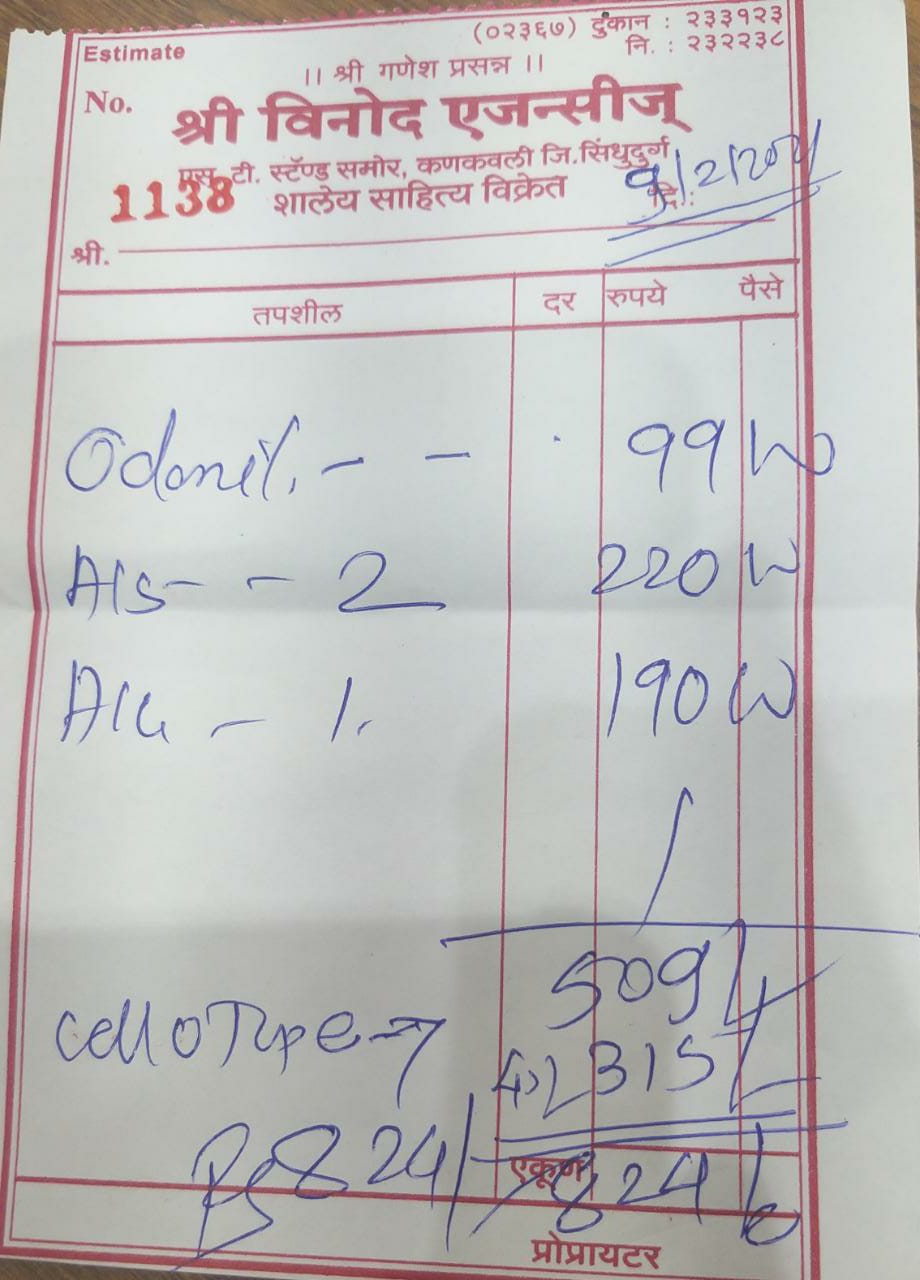 Estimate
(०२३६७) दुकान : २३३१२३
नि. : २३२२३८
।। श्री गणेश प्रसन्न ।।
No.
श्री विनोद एजन्सीज्
एस. टी. स्टॅण्ड समोर, कणकवली जि.सिंधुदुर्ग
1138 शालेय साहित्य विक्रेत दि.:
श्री.
तपशील दर रुपये पैसे
Odonil. - - 99
A15 - - 2 220
A14 - 1. 190
509
Cello Tape 315
Rs 824/ एकूण 824
प्रोप्रायटर